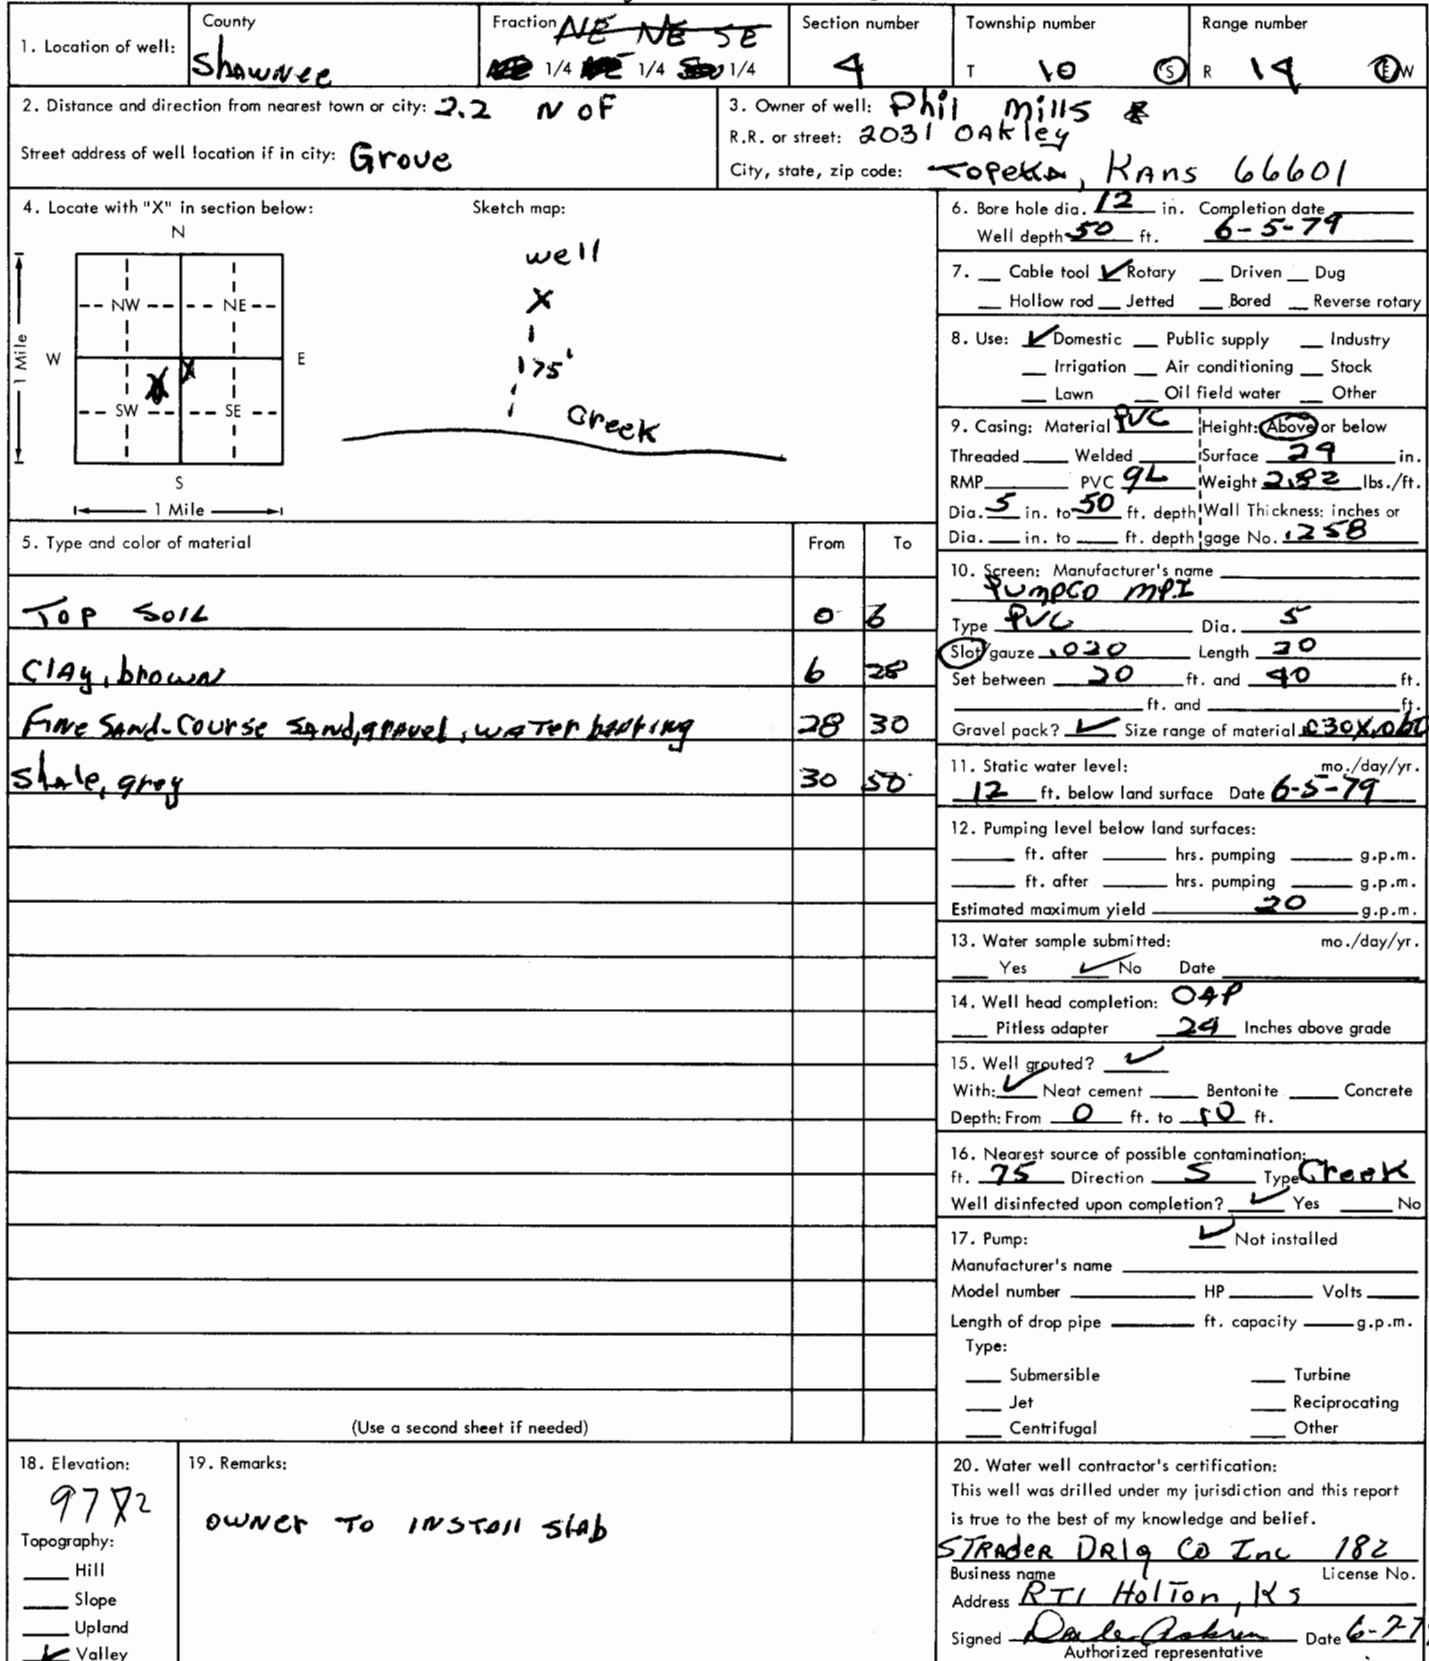 1. Location of well:
County
Shawnee
Fraction NE NE SE
1/4 1/4 1/4
Section number
4
Township number
T 10 S
Range number
R 14 E W
2. Distance and direction from nearest town or city: 2.2 N OF
Street address of well location if in city: Grove
3. Owner of well: Phil Mills
R.R. or street: 2031 OAkley
City, state, zip code: TopeKA, KAns 66601
4. Locate with "X" in section below:
Sketch map:
N
NW NE
W E
SW SE
S
1 Mile
1 Mile
X
well
X
75'
Creek
5. Type and color of material From To
Top Soil 0 6
Clay, brown 6 28
Fine Sand-Course Sand, gravel, water bearing 28 30
Shale, grey 30 50
(Use a second sheet if needed)
6. Bore hole dia. 12 in. Completion date
Well depth 50 ft. 6-5-79
7. Cable tool ✓ Rotary Driven Dug
Hollow rod Jetted Bored Reverse rotary
8. Use: ✓ Domestic Public supply Industry
Irrigation Air conditioning Stock
Lawn Oil field water Other
9. Casing: Material PVC Height: Above or below
Threaded Welded Surface 24 in.
RMP PVC GL Weight 2.82 lbs./ft.
Dia. 5 in. to 50 ft. depth Wall Thickness: inches or
Dia. in. to ft. depth gage No. .258
10. Screen: Manufacturer's name
Pumpco MPI
Type PVC Dia. 5
Slot/gauze .020 Length 20
Set between 20 ft. and 40 ft.
ft. and ft.
Gravel pack? ✓ Size range of material .030X.060
11. Static water level: mo./day/yr.
12 ft. below land surface Date 6-5-79
12. Pumping level below land surfaces:
ft. after hrs. pumping g.p.m.
ft. after hrs. pumping g.p.m.
Estimated maximum yield 20 g.p.m.
13. Water sample submitted: mo./day/yr.
Yes ✓ No Date
14. Well head completion: CAP
Pitless adapter 24 Inches above grade
15. Well grouted? ✓
With: ✓ Neat cement Bentonite Concrete
Depth: From 0 ft. to 10 ft.
16. Nearest source of possible contamination:
ft. 75 Direction S Type Creek
Well disinfected upon completion? ✓ Yes No
17. Pump: ✓ Not installed
Manufacturer's name
Model number HP Volts
Length of drop pipe ft. capacity g.p.m.
Type:
Submersible Turbine
Jet Reciprocating
Centrifugal Other
18. Elevation:
972
Topography:
Hill
Slope
Upland
✓ Valley
19. Remarks:
OWNER TO INSTALL Slab
20. Water well contractor's certification:
This well was drilled under my jurisdiction and this report
is true to the best of my knowledge and belief.
STRADER DRlg Co Inc 182
Business name License No.
Address RT1 Holton, KS
Signed Date 6-7-7
Authorized representative